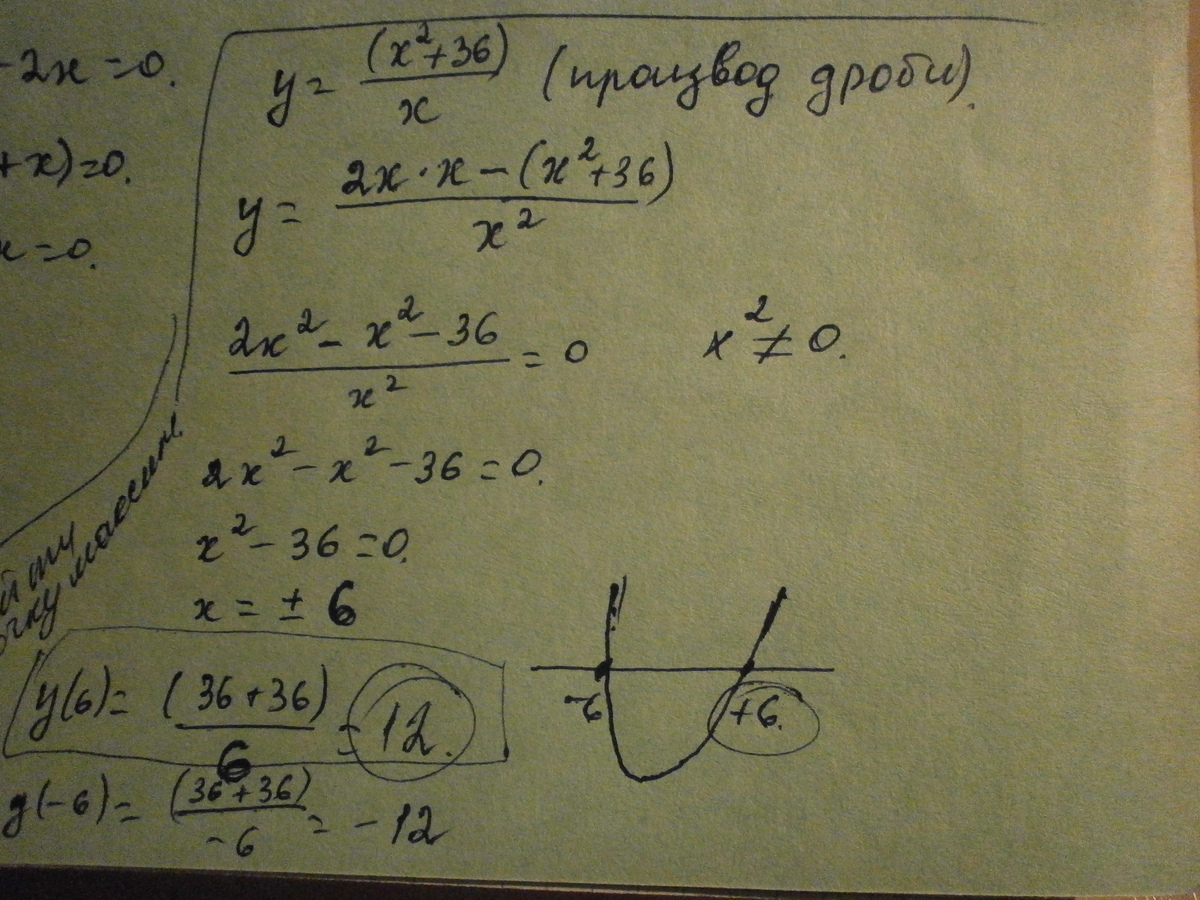 -2x = 0.
+x) = 0.
x = 0.
y = (x²+36)/x (производ дроби).
y = (2x·x-(x²+36))/x²
(2x²-x²-36)/x² = 0 x² ≠ 0.
2x²-x²-36 = 0.
x²-36 = 0.
x = ± 6
y(6) = (36+36)/6 = 12.
y(-6) = (36+36)/-6 = -12
-6 +6.